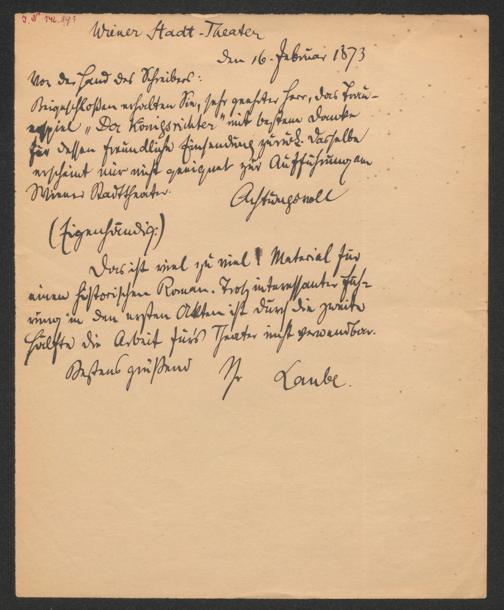 I. N. 142.193
Wiener Stadt-Theater
den 16. Februar 1873
Von der Hand des Schreibers:
Beigeschloßen erhalten Sie, sehr geehrter Herr, das Trau-
erspiel „Der Königsrichter" mit bestem Danke
für dessen freundliche Einsendung zurück. Dasselbe
erscheint mir nicht geeignet zur Aufführung am
Wiener Stadttheater.
Achtungsvoll
(Eigenhändig:)
Das ist viel zu viel! Material für
einen historischen Roman. Trotz interessanter Füh-
rung in den ersten Akten ist durch die zweite
Hälfte die Arbeit fürs Theater nicht verwendbar.
Bestens grüßend Ihr Laube.